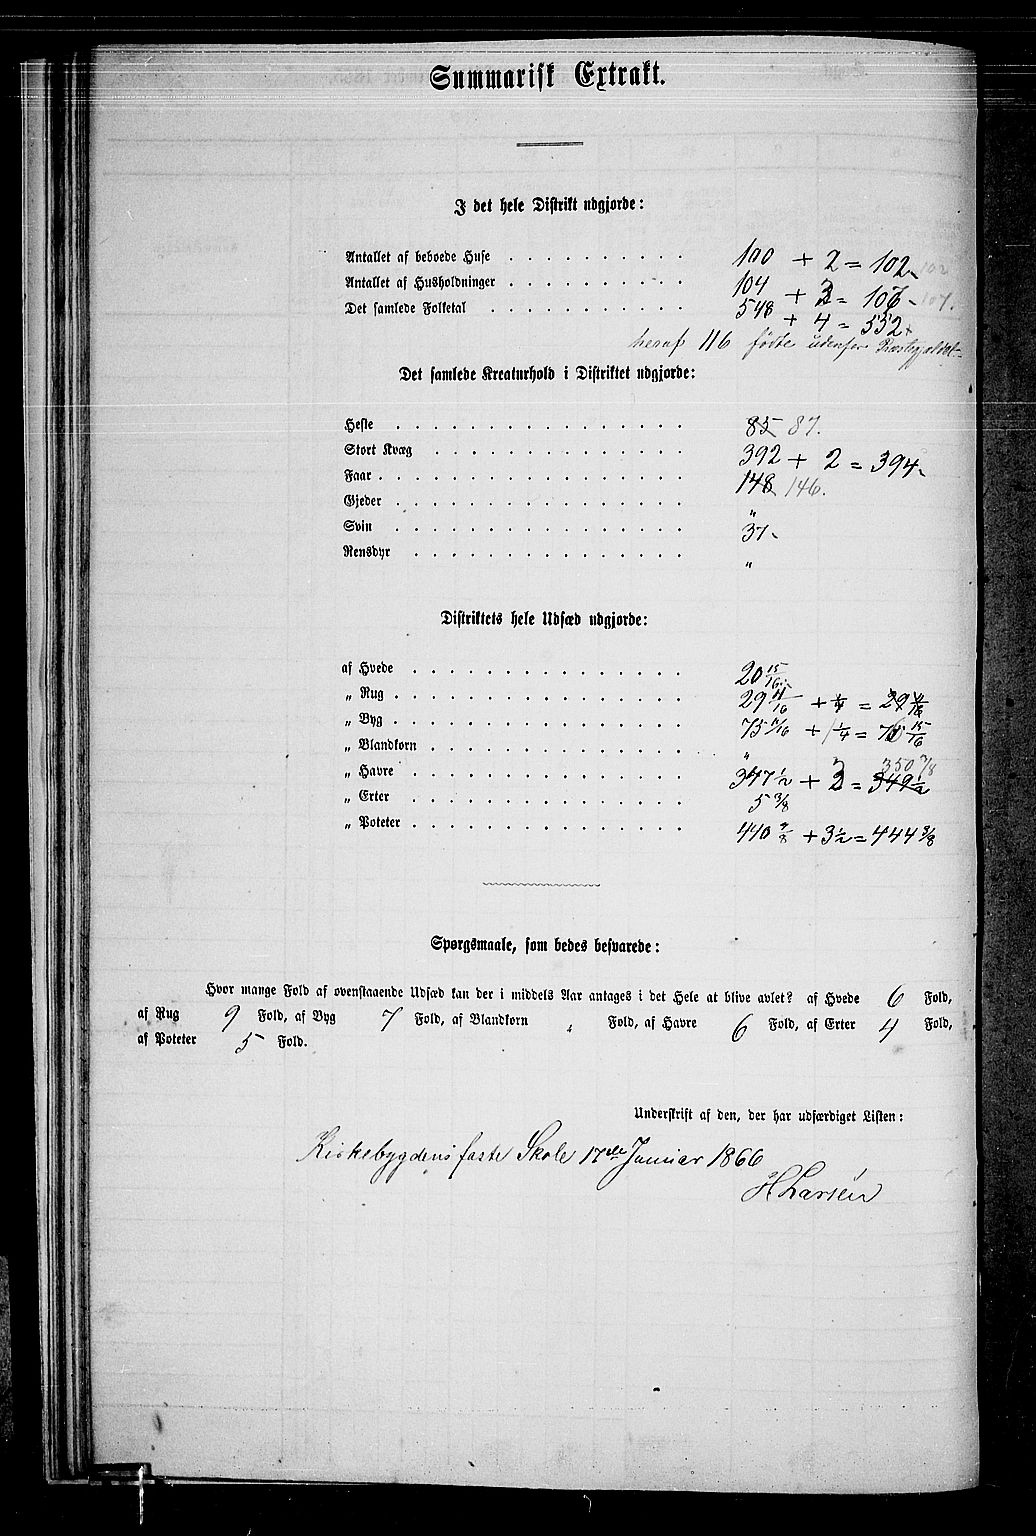 Summarisk Extrakt.
I det hele Distrikt udgjorde:
Antallet af beboede Huse . . . . . . . . . . 100 + 2 = 102 102
Antallet af Husholdninger . . . . . . . . . . 104 + 3 = 107 107.
Det samlede Folketal . . . . . . . . . . . 548 + 4 = 552
heraf 116 fødte udenfor Præstegjældet
Det samlede Kreaturhold i Distriktet udgjorde:
Heste . . . . . . . . . . . . . . . . 85 87.
Stort Kvæg . . . . . . . . . . . . . . 392 + 2 = 394
Faar . . . . . . . . . . . . . . . . . 148 146.
Gjeder . . . . . . . . . . . . . . . . "
Svin . . . . . . . . . . . . . . . . 37
Rensdyr . . . . . . . . . . . . . . . "
Distriktets hele Udsæd udgjorde:
af Hvede . . . . . . . . . . . . . . . 20 15/16
„ Rug . . . . . . . . . . . . . . . . 29 11/16 + 1/4 = 29
„ Byg . . . . . . . . . . . . . . . . 75 11/16 + 1/4 = 15/16
„ Blandkorn . . . . . . . . . . . . . . "
„ Havre . . . . . . . . . . . . . . . 347 1/2 + 3 = 349 1/2 350
„ Erter . . . . . . . . . . . . . . . 5 3/8
„ Poteter . . . . . . . . . . . . . . . 440 + 3 1/2 = 444 3/8
Spørgsmaale, som bedes besvarede:
Hvor mange Fold af ovenstaaende Udsæd kan der i middels Aar antages i det Hele at blive avlet? af Hvede 6 Fold,
af Rug 9 Fold, af Byg 7 Fold, af Blandkorn „ Fold, af Havre 6 Fold, af Erter 4 Fold,
af Poteter 5 Fold.
Underskrift af den, der har udfærdiget Listen:
Kirkebygdens faste Skole 17de Januar 1866
H Larsen